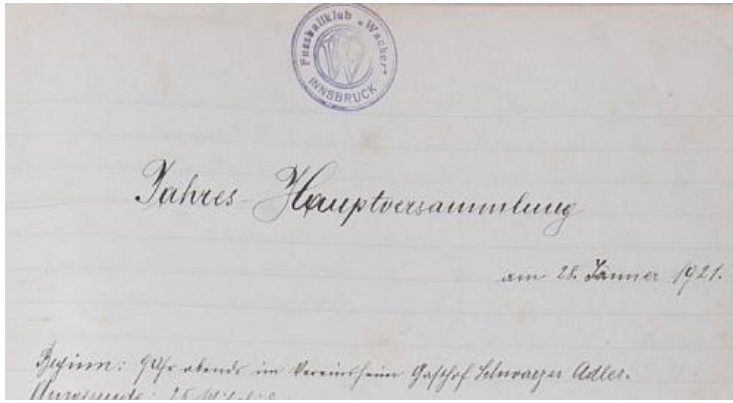 Fussballklub „Wacker“
INNSBRUCK
Jahres-Hauptversammlung
am 28. Jänner 1921.
Beginn: 9 Uhr abends im Vereinsheim Gasthof Schwarzer Adler.
Anwesende: 25 Mitglie